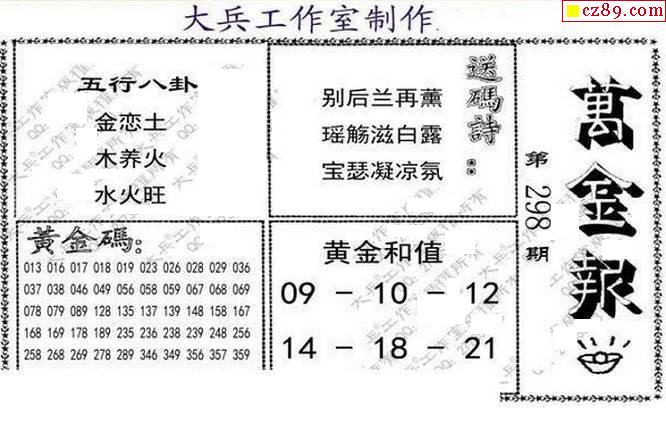 大兵工作室制作.
cz89.com
五行八卦
金恋土
木养火
水火旺
送碼詩:
别后兰再薰
瑶觞滋白露
宝瑟凝凉氛
萬金報
第298期
黃金碼:
013 016 017 018 019 023 026 028 029 036
037 038 046 049 056 058 059 067 068 069
078 079 089 128 135 137 139 148 158 167
168 169 178 189 235 236 238 239 246 248
258 268 269 278 289 346 349 356 357 359
黄金和值
09 - 10 - 12
14 - 18 - 21